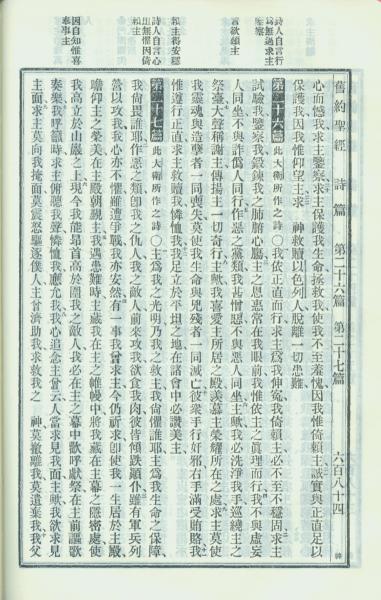 舊約聖經 詩篇 第二十六篇 第二十七篇 六百八十四
心而憾我求主鑒察求主保護我生命拯救我使我不至羞愧因我惟倚賴主誠實與正直足以
保護我因我惟仰望主求 神救贖以色列人脫離一切患難
詩人自言行
爲無過求主
鑒察
第二十六篇 此大衛所作之詩〇我依正直而行求主爲我伸寃我倚賴主必不至不穩固求主
試驗我鑒察我鍛鍊我之肺腑心腸主之恩惠常在我眼前我惟依主之眞理而行我不與虛妄
言欲頌主
人同坐不與詐僞人同行作惡之黨類我甚憎惡不與惡人同坐主歟我必洗淨我手環繞主之
祭臺大聲稱謝主傳揚主一切奇行主歟我喜愛主所居之殿羨慕主榮耀所在之處求主莫使
我靈魂與造孽者一同喪失莫使我生命與兇殘者一同滅亡彼衆手行奸邪右手滿受賄賂我
賴主得安穩
惟遵行正直求主救贖我憐恤我我足立於平坦之地在諸會中必讚美主
詩人自言心
無懼因倚
賴主
第二十七篇 此大衛所作之詩〇主爲我之光明乃我之救主我尚懼誰耶主爲我生命之保障
我尚畏誰耶作惡之類即我之仇人我之敵人前來攻我欲食我肉彼皆傾跌隕仆雖有軍兵列
營以攻我我心亦不懼雖遭爭戰我亦安然有一事我曾求主今仍祈求即使我一生居於主殿
因自知惟喜
奉事主
瞻仰主之榮美在主殿朝覲主我遇患難時主藏我在主之帷幔中將我藏在主幕之隱密處使
我高立於山巖之上現今我能昂首高於圍我之敵人我必在主之幕中歡呼獻祭在主前謳歌
奏樂我呼籲時求主俯聽我聲憐恤我應允我我心追念主曾云人當求見我面主歟我欲求見
主面求主莫向我掩面莫震怒驅逐僕人主曾濟助我求救我之 神莫撤離我莫遺棄我我父